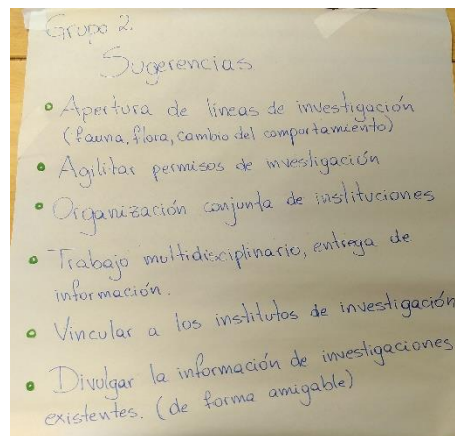 Grupo 2.
Sugerencias
• Apertura de líneas de investigación
(fauna, flora, cambio del comportamiento)
• Agilitar permisos de investigación
• Organización conjunta de instituciones
• Trabajo multidisciplinario, entrega de
información.
• Vincular a los institutos de investigación
• Divulgar la información de investigaciones
existentes. (de forma amigable)